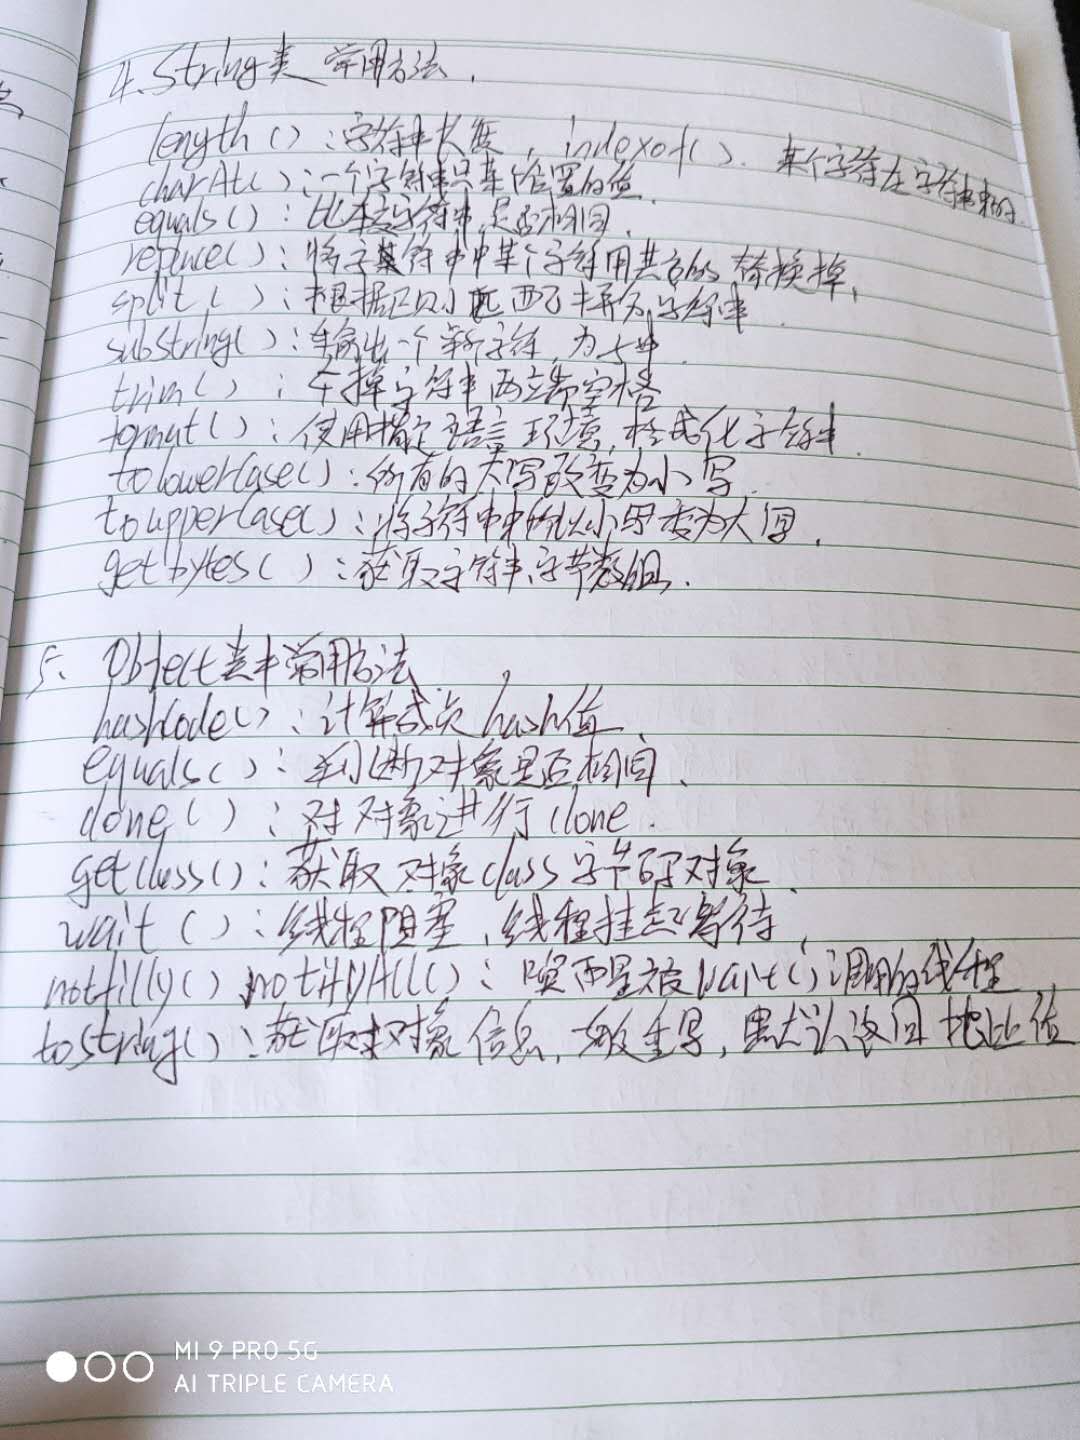 4. String类 常用方法.
length(): 字符串长度, indexof(). 某个字符在字符串的.
charAt(): 一个字符串只某个位置的值.
equals(): 比本字符串是否相同.
repluce(): 将字符串中某个字符用其它的替换掉,
split(): 根据正则匹配拆分字符串.
subString(): 输出一个新字符, 为子串.
trim(): 去掉字符串两立端空格
formut(): 使用指定语言环境, 格式化字符串.
toLowerCase(): 所有的大写改变为小写.
toupperCase(): 将字符串中所以小写变为大写.
getbytes(): 获取字符串字节数组.
5. Object类中常用方法
hashCode(): 计算成员hash值.
equals(): 判断对象是否相同.
clone(): 对对象进行clone.
getCluss(): 获取对象class字节码对象.
wait(): 线程阻塞, 线程挂起等待,
notfilly() notifyAll(): 唤醒被wait()调用的线程
toString(): 获取对象信息, 一般重写, 默认返回地址值
MI 9 PRO 5G
AI TRIPLE CAMERA